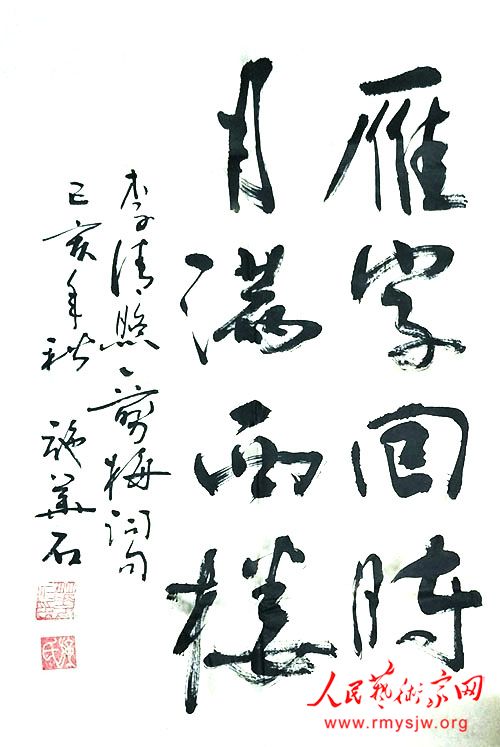 雁字回時
月满西楼
李清照一剪梅词句
己亥年秋 施華石
人民藝術家网
www.rmysjw.org